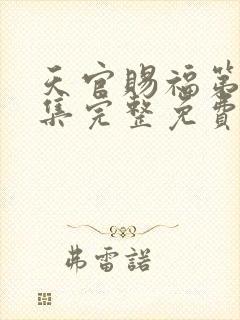 天官賜福第
集完整免費
弗雷諾